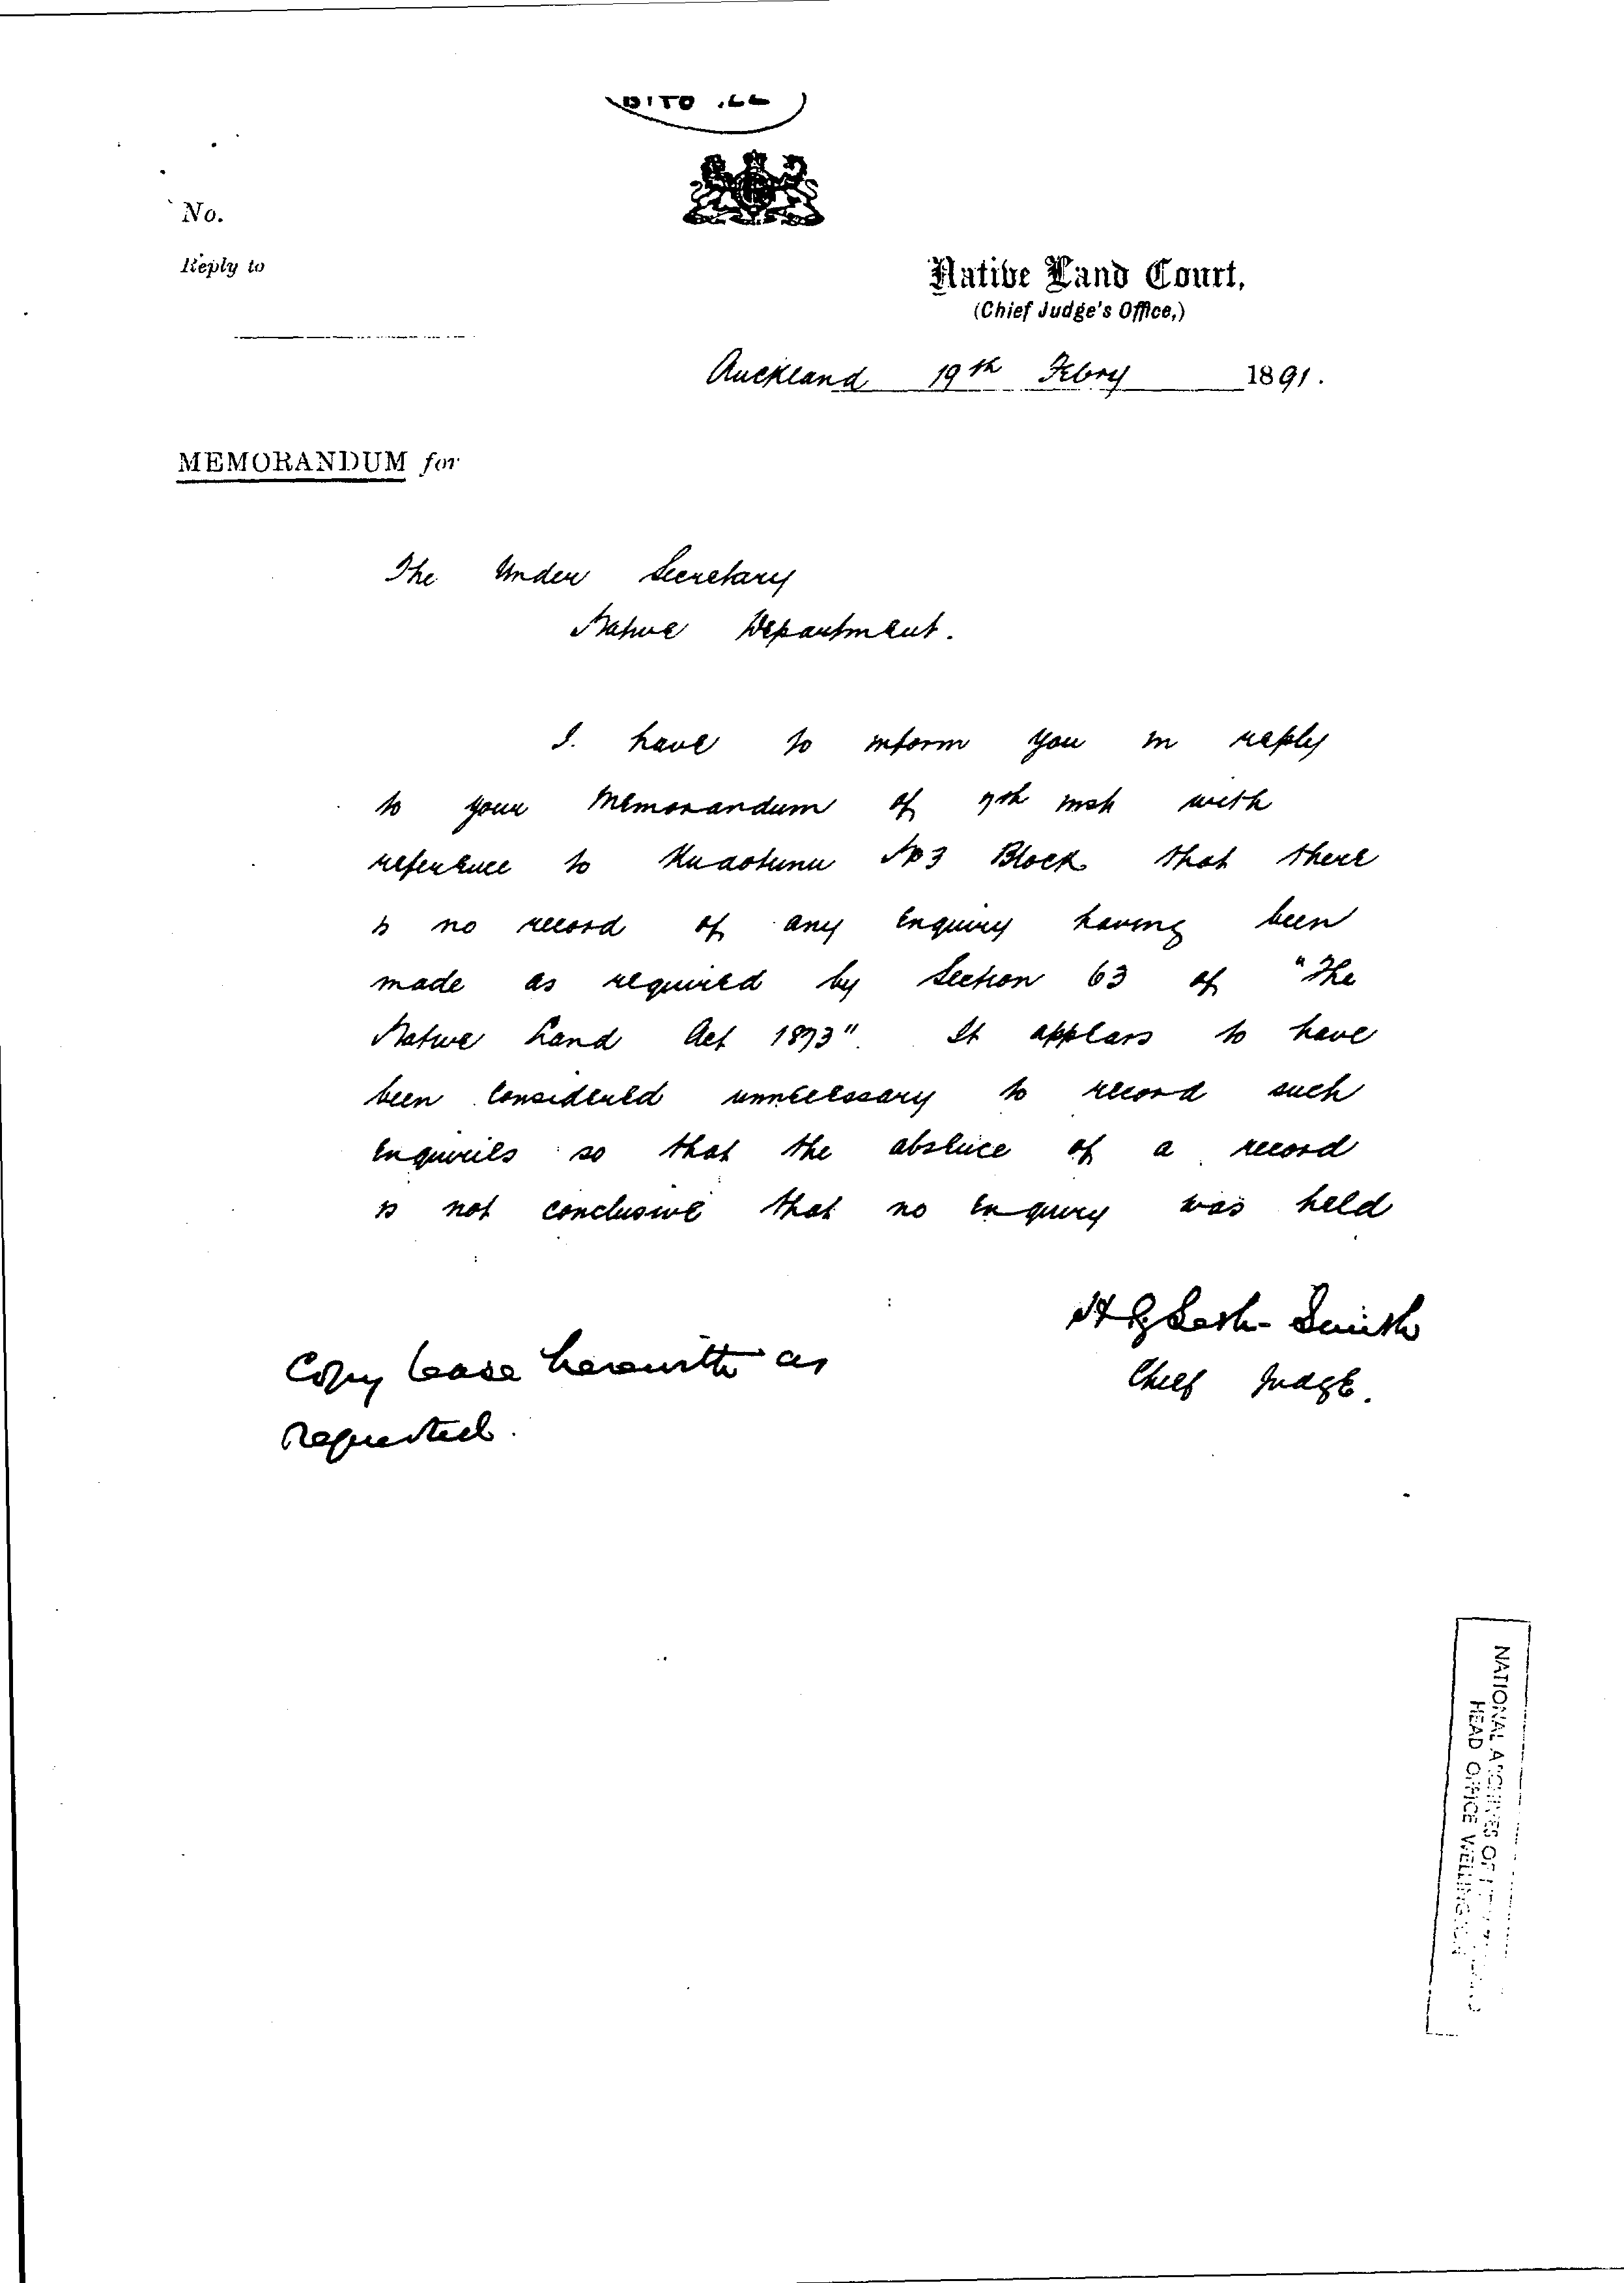 No.
Reply to
Native Land Court,
(Chief Judge's Office,)
Auckland 19th Febry 1891.
MEMORANDUM for
The Under Secretary
Native Department.
I have to inform you in reply
to your Memorandum of 7th inst with
reference to Kuaotunu No 3 Block that there
is no record of any Enquiry having been
made as required by Section 63 of "The
Native Land Act 1873". It appears to have
been Considered unnecessary to record such
Enquiries so that the absence of a record
is not conclusive that no Enquiry was held
H G Seth-Smith
Chief Judge.
Copy lease herewith as
requested.
NATIONAL ARCHIVES OF
HEAD OFFICE WELLINGTON